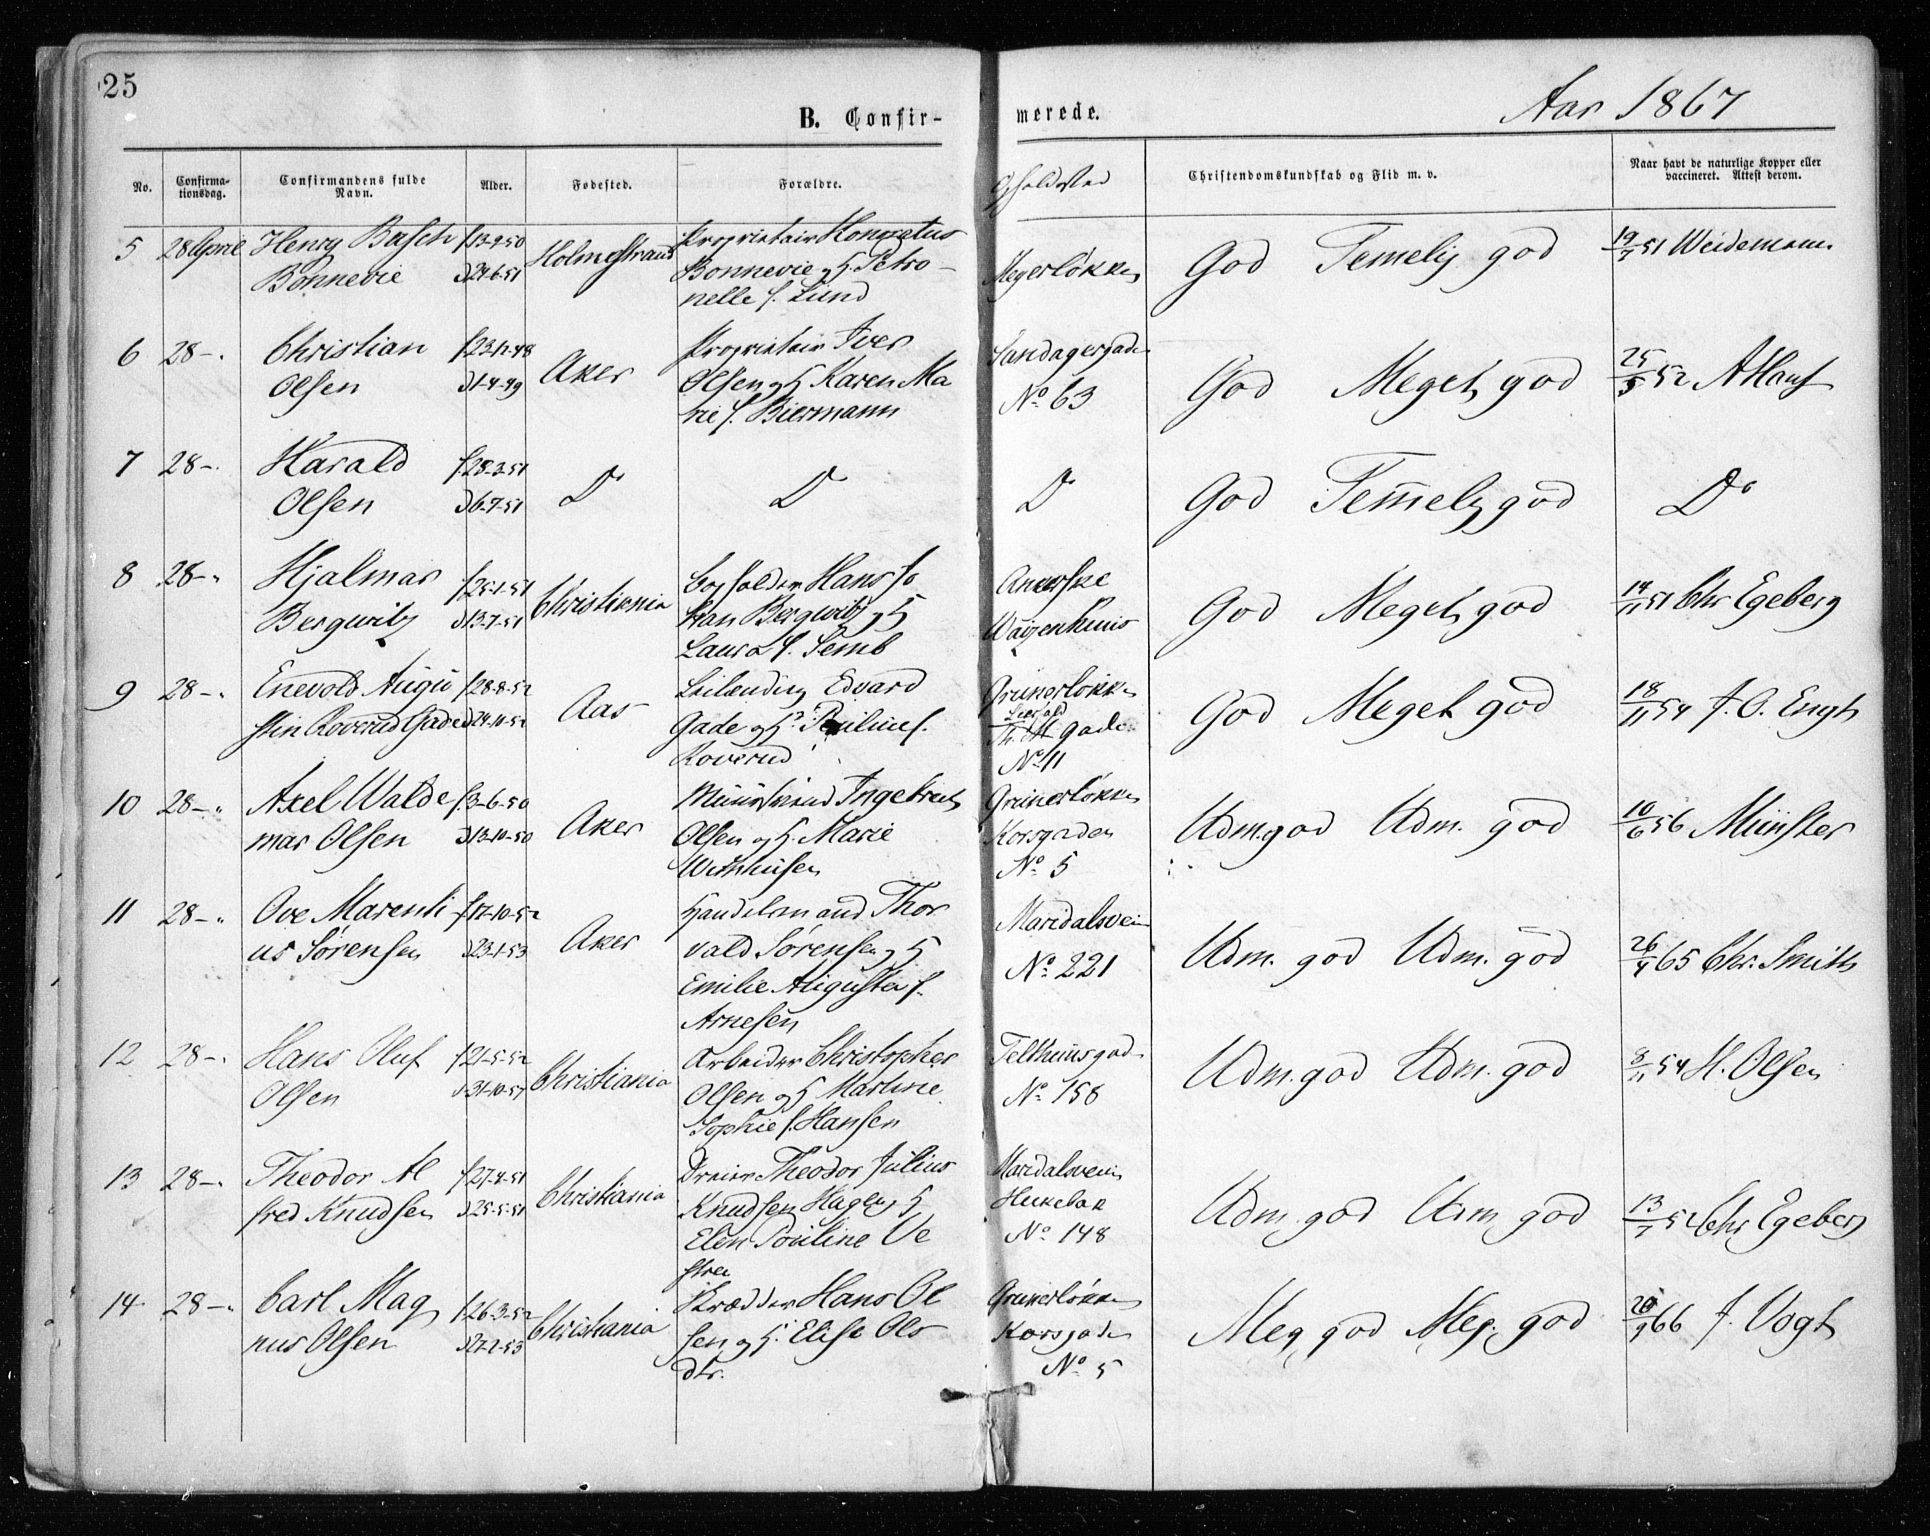 25
B. Confir-
merede.
Aar 1867
No.
Confirma-
tionsdag.
Confirmandens fulde
Navn.
Alder.
Fødested.
Forældre.
Opholdsted
Christendomskundskab og Flid m. v.
Naar havt de naturlige Kopper eller
vaccineret. Attest derom.
5 28 April Henry Basch f 13-9-50 Holmestrand Proprietair Honoratus
Bonnevie d 24-6-51 Bonnevie og H. Petro-
nelle f. Lund
Meyerløkken God Temelig god 19/7 51 Weidemann
6 28-. Christian f 23-12-48 Aker Proprietair Iver
Olsen d 1-4-49 Olsen og H Karen Ma
rie f. Biermann
Sandagergaden
No 63 God Meget god 25/5 52
7 28-. Harald f 28-3-51
Olsen d 6-7-51 Do Do
Do God Temelig god Do
8 28-. Hjalmar f 25-1-51 Christiania Hans
Bergwitz d 13-7-51 Bergwitz og H
Laura f. Semb
Ankerske
Waisenhuus God Meget god 14/11 51 Chr Egeberg
9 28-. Enevold Augu f 28-8-52 Aas Leilænding Edvard
stin Roverud Gade d 24-10-52 Gade og H Pauline f.
Roverud
Grünerløkken
gade
No 11 God Meget god 18/11 54 J. O. Engh
10 28-. Axel Walde f 3-6-50 Aker Muursvend Ingebret
mar Olsen d 13-10-50 Olsen og H. Marie
Withusen
Grünerløkken
Korsgaden
No 5 Udm. god Udm. god 10/6 56 Münster
11 28-. Ove Marenti f 17-10-52 Aker Handelsmand Thor
us Sørensen d 23-1-53 vald Sørensen og H
Emilie Augusta f.
Arnesen
Maridalsvein
No 221 Udm. god Udm. god 26/4 65 Chr. Smith
12 28-. Hans Oluf f 21-5-52 Christiania Arbeider Christopher
Olsen d 31-10-57 Olsen og H Martine
Sophie f. Hansen
Telthuusgaden
No 158 Udm. god Udm. god 8/11 54 H. Olsen
13 28-. Theodor Al f 27-4-51 Christiania Dreier Theodor Julius
fred Knudsen d 25-5-51 Knudsen Hagen og H
Elen Pouline Ve
stra
Maridalsvein
No 148 Udm. god Udm god 13/7 52 Chr Egeberg
14 28-. Carl Mag f 26-3-52 Christiania Skrædder Hans Ol
nus Olsen d 27-2-53 sen og H. Elise Ols
dtr.
Grünerløkken
Korsgaden
No 5 Meg. god Meg. god 20/9 66 J. Vogt